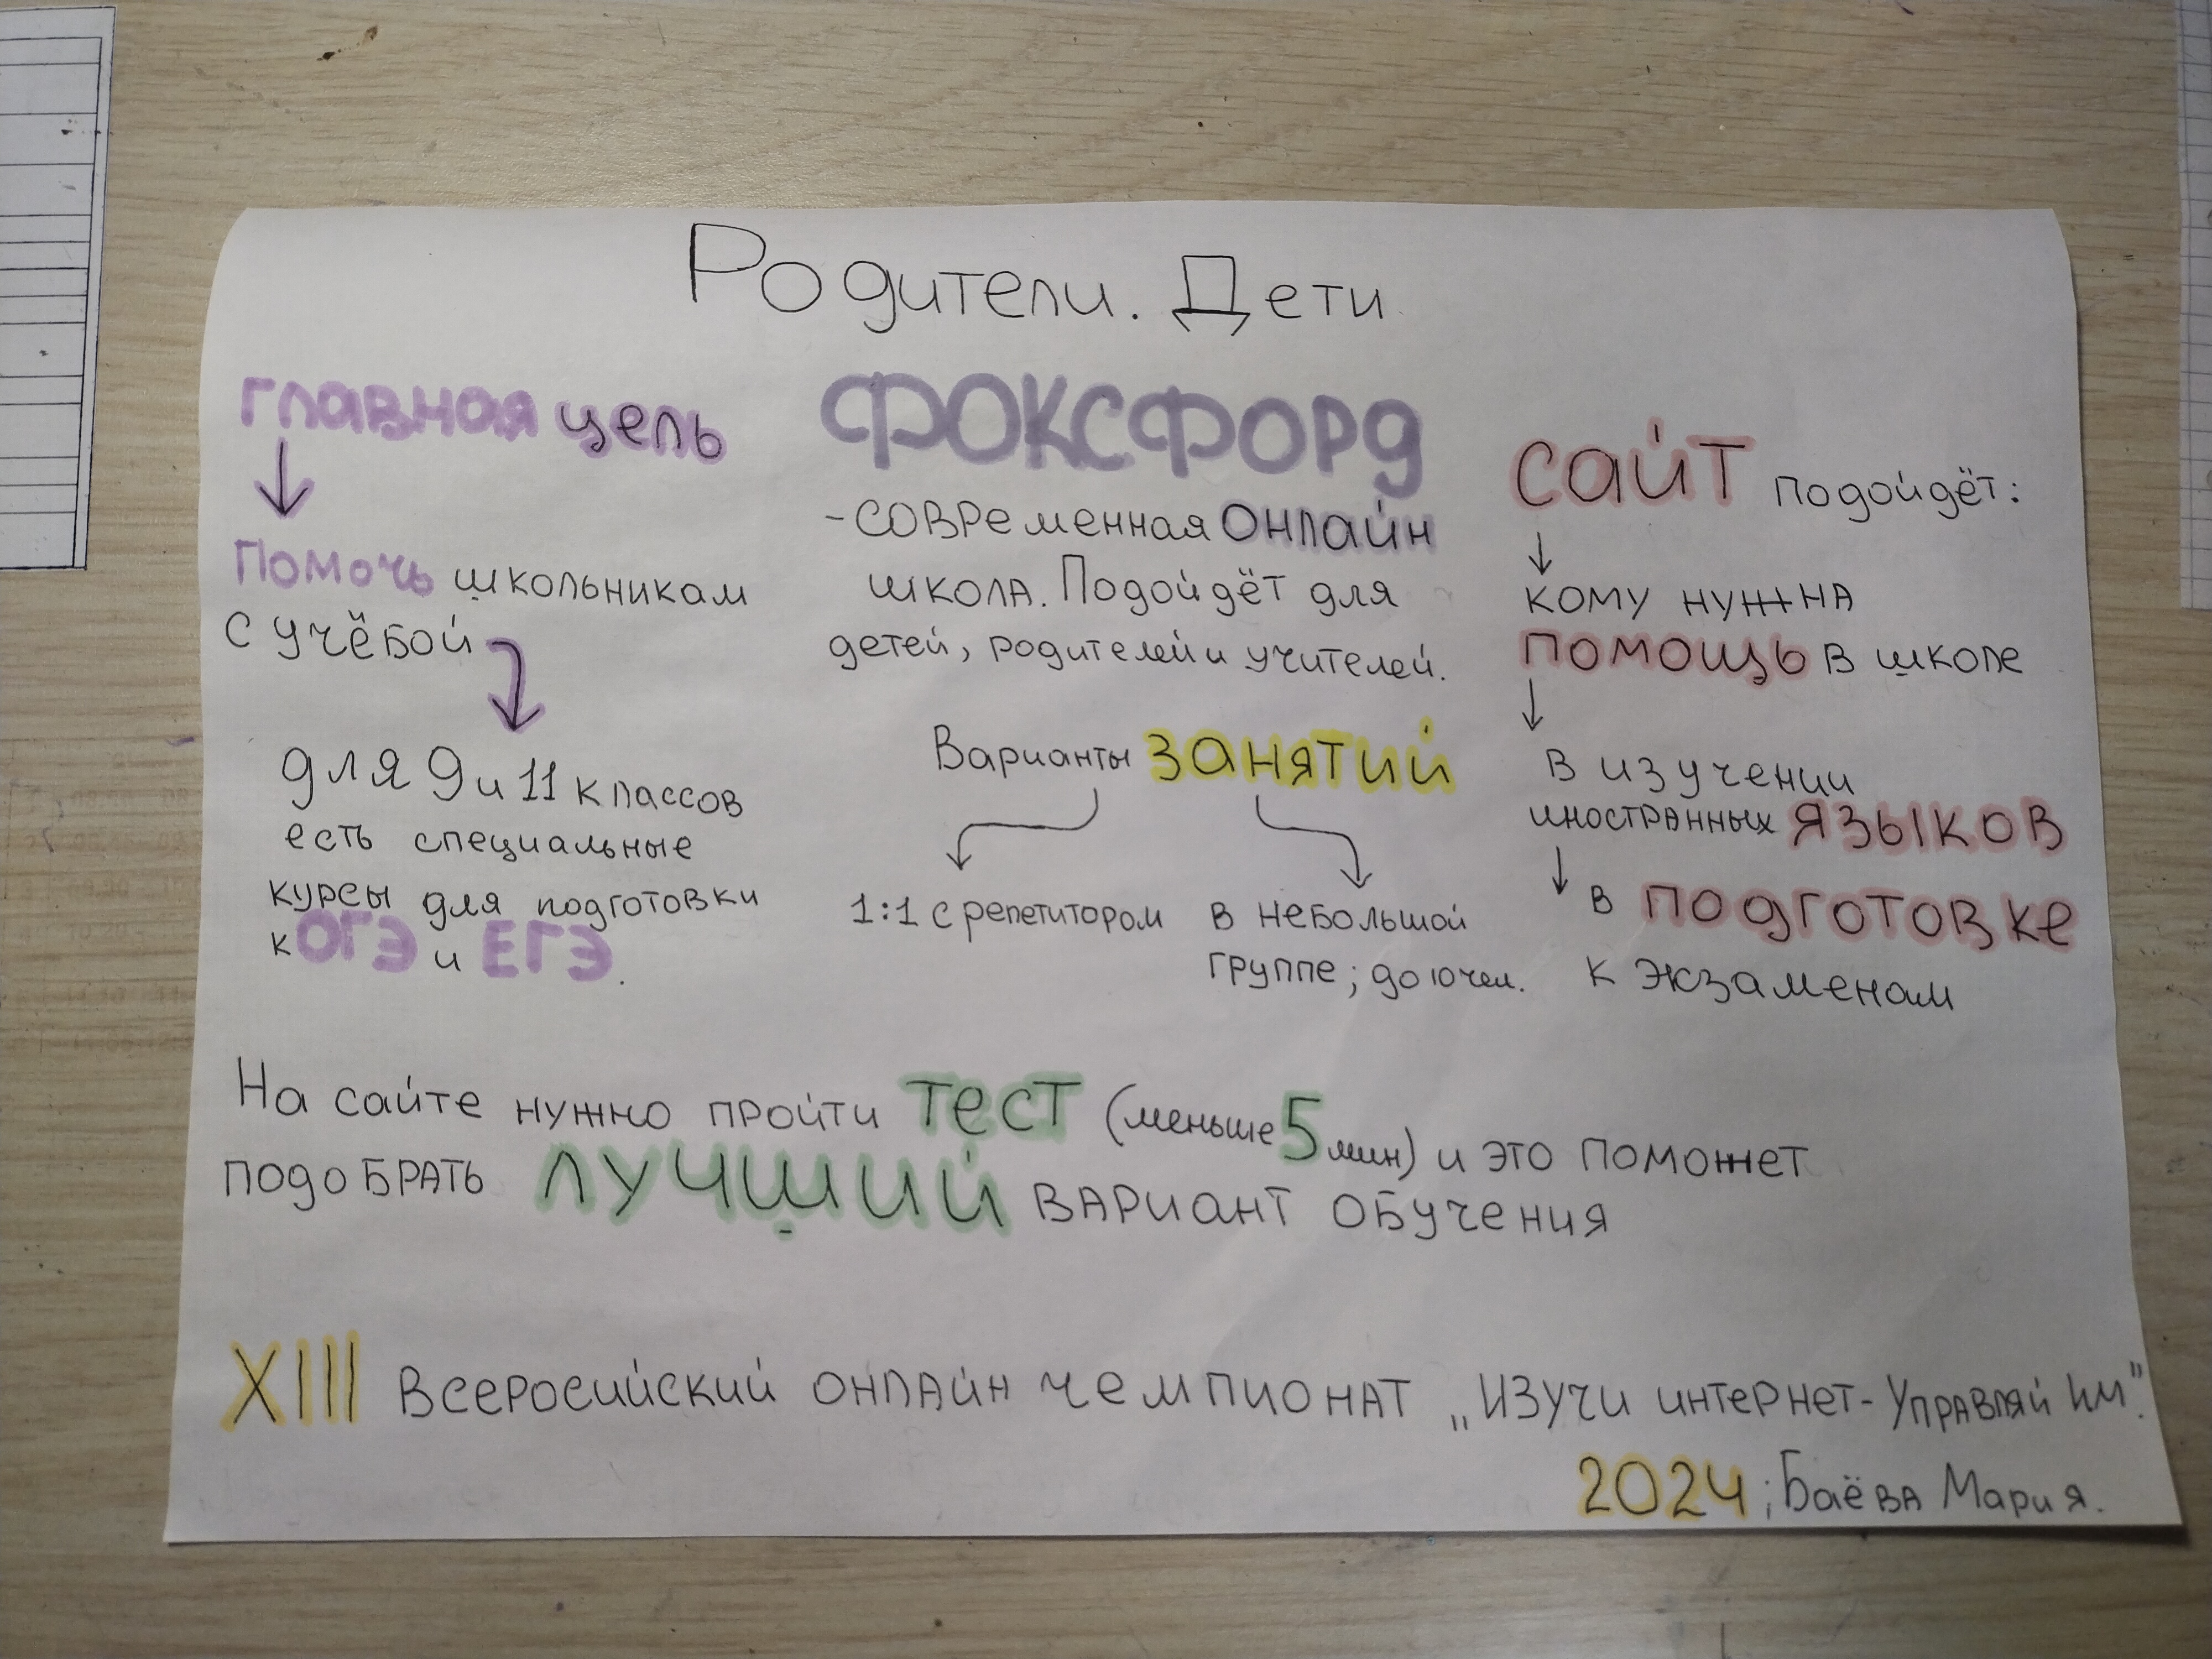 Родители. Дети
главная цель
Помочь школьникам
с учёбой
для 9 и 11 классов
есть специальные
курсы для подготовки
к ОГЭ и ЕГЭ.
ФОКСФОРД
- современная онлайн
школа. Подойдёт для
детей, родителей и учителей.
Варианты занятий
1:1 с репетитором
в небольшой
группе; до 10 чел.
сайт подойдёт:
кому нужна
помощь в школе
в изучении
иностранных языков
в подготовке
к экзаменам
На сайте нужно пройти тест (меньше 5 мин) и это поможет
подобрать лучший вариант обучения
XIII Всеросийский онлайн чемпионат „Изучи интернет- Управляй им".
2024; Баёва Мария.